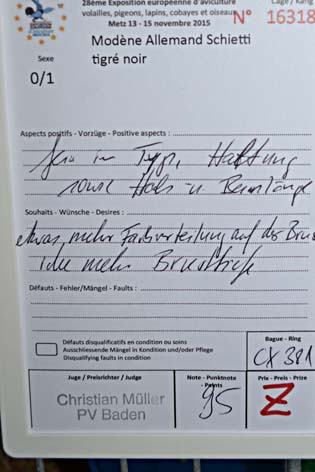 28ème Exposition européenne d'aviculture
volailles, pigeons, lapins, cobayes et oiseaux
Metz 13 - 15 novembre 2015
Cage / Käfig
N° 16318
Modène Allemand Schietti
tigré noir
Sexe
0/1
Aspects positifs - Vorzüge - Positive aspects :
fein im Typ, Haltung
sowie Hals u. Beinlänge
Souhaits - Wünsche - Desires :
etwas mehr Farbverteilung auf der Brust
Idee mehr Brusttiefe
Défauts - Fehler/Mängel - Faults :
Défauts disqualificatifs en condition ou soins
Ausschliessende Mängel in Kondition und/oder Pflege
Disqualifying faults in condition
Bague - Ring
CX 381
Juge / Preisrichter / Judge
Christian Müller
PV Baden
Note - Punktnote
- Points
95
Prix - Preis - Prize
Z